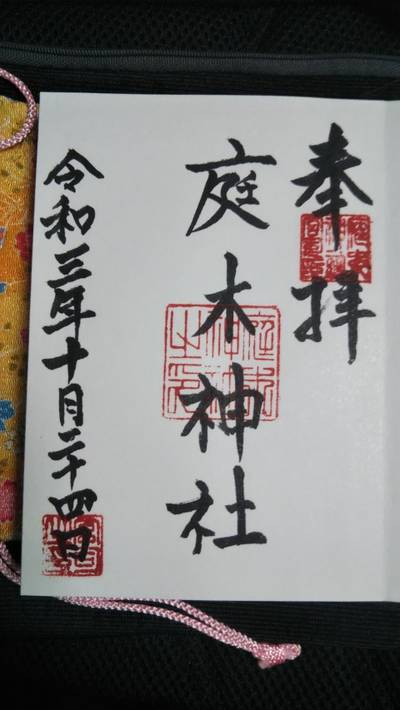 奉拝
庭木神社
令和三年十月二十四日